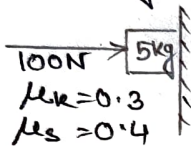 5kg
100N
μk=0.3
μs=0.4